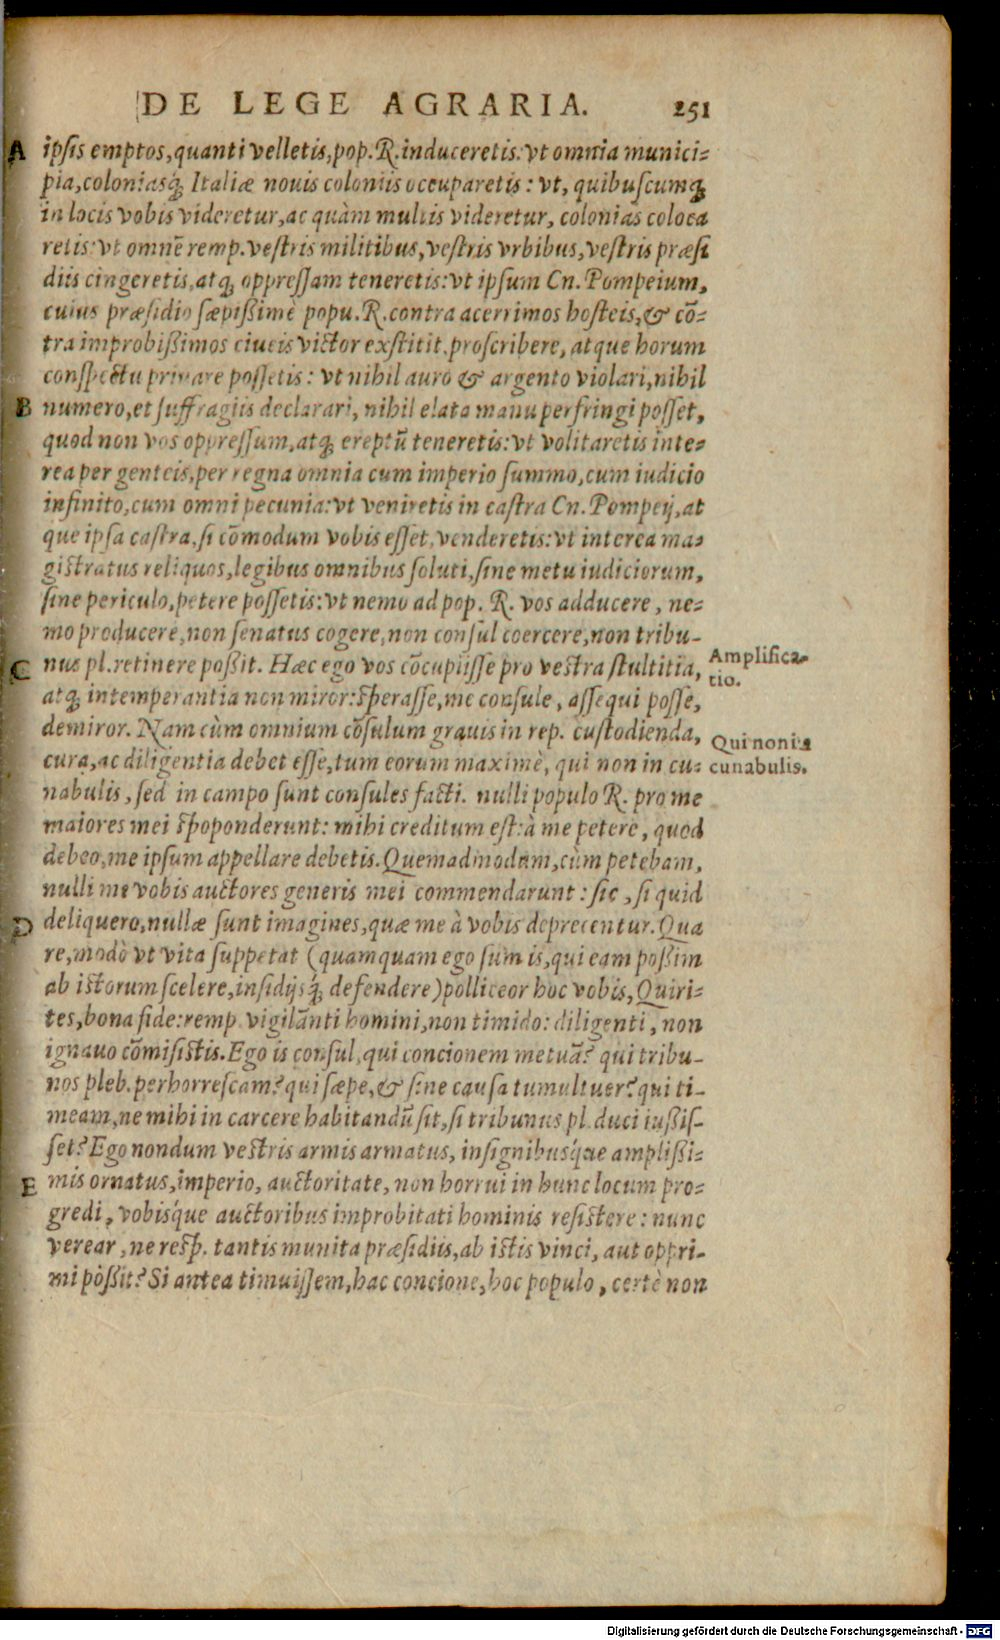 DE LEGE AGRARIA. 251
A ipsis emptos, quanti velletis, pop. R. induceretis: vt omnia munici-
pia, coloniasq́; Italiæ nouis coloniis occuparetis: vt, quibuscumq;
in locis vobis videretur, ac quàm multis videretur, colonias coloca
retis: vt omnē remp. vestris militibus, vestris vrbibus, vestris præsi
diis cingeretis, atq; oppressam teneretis: vt ipsum Cn. Pompeium,
cuius præsidio sæpißimè popu. R. contra acerrimos hosteis, & cō-
tra improbißimos ciueis victor exstitit, proscribere, atque horum
conspectu priuare possetis: vt nihil auro & argento violari, nihil
B numero, et suffragiis declarari, nihil elata manu perfringi posset,
quod non vos oppressum, atq; ereptū teneretis: vt volitaretis inte-
rea per genteis, per regna omnia cum imperio summo, cum iudicio
infinito, cum omni pecunia: vt veniretis in castra Cn. Pompeij, at
que ipsa castra, si cōmodum vobis esset, venderetis: vt interea ma-
gistratus reliquos, legibus omnibus soluti, sine metu iudiciorum,
sine periculo, petere possetis: vt nemo ad pop. R. vos adducere, ne-
mo producere, non senatus cogere, non consul coercere, non tribu-
C nus pl. retinere poßit. Hæc ego vos cōcupiisse pro vestra stultitia,
Amplifica-
tio.
atq; intemperantia non miror: sperasse, me consule, assequi posse,
demiror. Nam cùm omnium cōsulum grauis in rep. custodienda,
Qui non in
cunabulis.
cura, ac diligentia debet esse, tum eorum maximè, qui non in cu-
nabulis, sed in campo sunt consules facti. nulli populo R. pro me
maiores mei spoponderunt: mihi creditum est: à me petere, quod
debeo, me ipsum appellare debetis. Quemadmodum, cùm petebam,
nulli me vobis auctores generis mei commendarunt: sic, si quid
D deliquero, nullæ sunt imagines, quæ me à vobis deprecentur. Qua
re, modò vt vita suppetat (quamquam ego sum is, qui eam possim
ab istorum scelere, insidijsq́; defendere) polliceor hoc vobis, Quiri-
tes, bona fide: remp. vigilāti homini, non timido: diligenti, non
ignauo cōmisistis. Ego is consul, qui concionem metuā? qui tribu-
nos pleb. perhorrescam? qui sæpe, & sine causa tumultuer? qui ti-
meam, ne mihi in carcere habitandū sit, si tribunus pl. duci iußis-
set? Ego nondum vestris armis armatus, insignibusq́ue amplißi-
E mis ornatus, imperio, auctoritate, non horrui in hunc locum pro-
gredi, vobisq́ue auctoribus improbitati hominis resistere: nunc
verear, ne resp. tantis munita præsidiis, ab istis vinci, aut oppri-
mi poßit? Si antea timuissem, hac concione, hoc populo, certè non
Digitalisierung gefördert durch die Deutsche Forschungsgemeinschaft - DFG